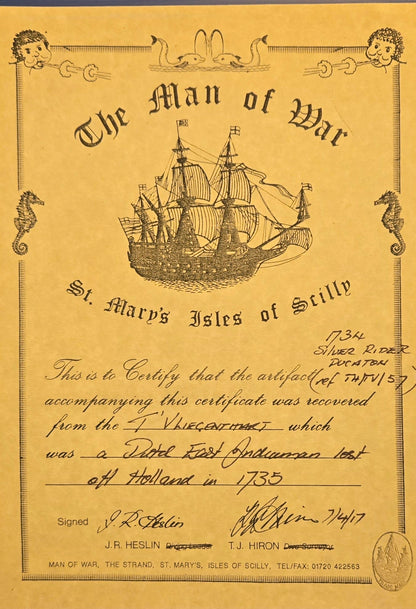 The Man of War
St. Mary's Isles of Scilly
1734
SILVER RIDER
DUCATON
This is to Certify that the artifact (ref TH/TV/57)
accompanying this certificate was recovered
from the T'VLIEGENTHART which
was a Dutch East Indiaman lost
off Holland in 1735
Signed J. R. Heslin T.J. Hiron 7/4/17
J.R. HESLIN Diving Leader T.J. HIRON Dive Surveyor
MAN OF WAR, THE STRAND, ST. MARY'S, ISLES OF SCILLY, TEL/FAX: 01720 422563